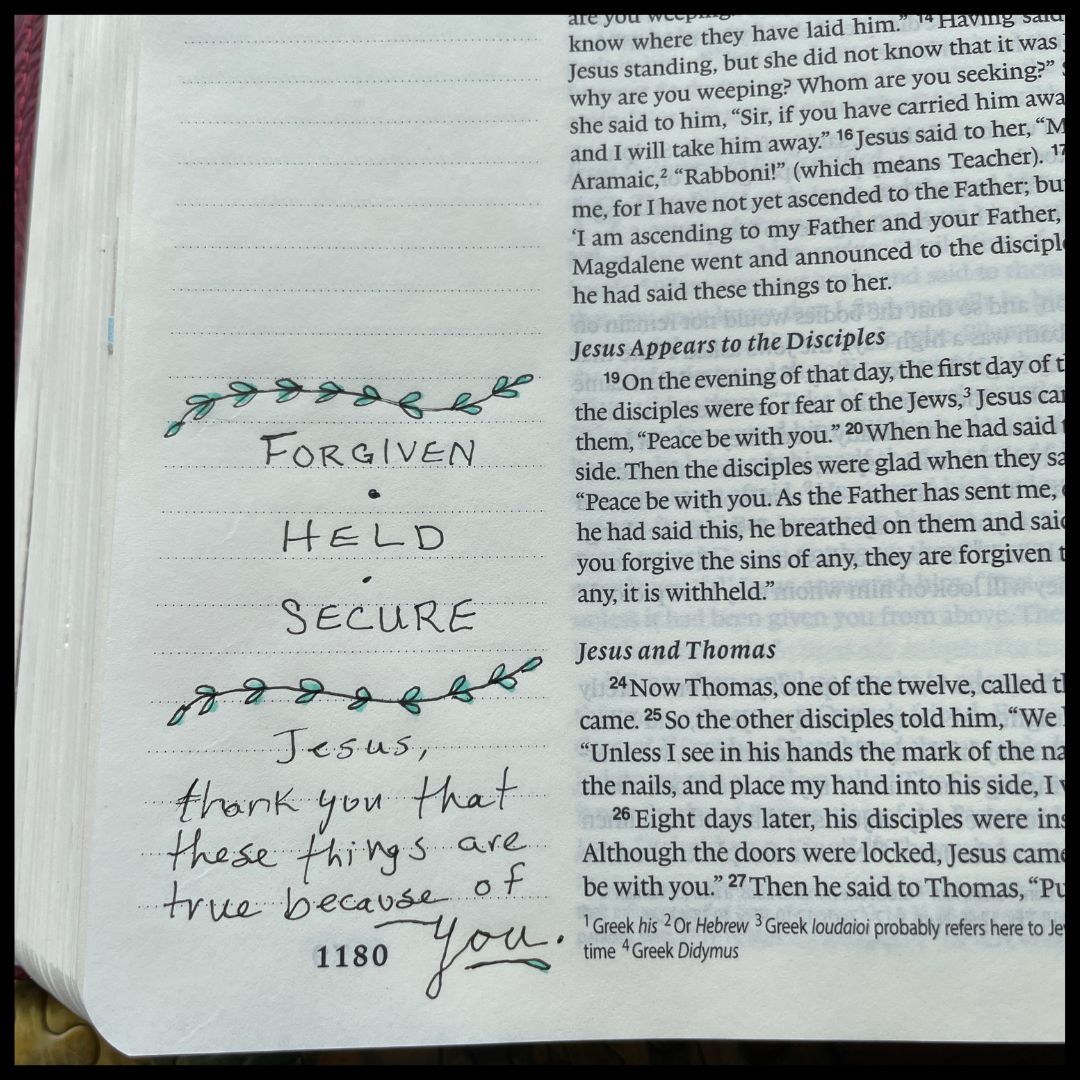 FORGIVEN
•
HELD
•
SECURE
Jesus,
thank you that
these things are
true because of
you.
1180
are you weeping
know where they have laid him.” 14 Having said
Jesus standing, but she did not know that it was
why are you weeping? Whom are you seeking?”
she said to him, “Sir, if you have carried him awa
and I will take him away.” 16 Jesus said to her, “M
Aramaic,2 “Rabboni!” (which means Teacher). 17
me, for I have not yet ascended to the Father; bu
‘I am ascending to my Father and your Father,
Magdalene went and announced to the discipl
he had said these things to her.
Jesus Appears to the Disciples
19 On the evening of that day, the first day of t
the disciples were for fear of the Jews,3 Jesus ca
them, “Peace be with you.” 20 When he had said
side. Then the disciples were glad when they sa
“Peace be with you. As the Father has sent me,
he had said this, he breathed on them and said
you forgive the sins of any, they are forgiven t
any, it is withheld.”
Jesus and Thomas
24 Now Thomas, one of the twelve, called t
came. 25 So the other disciples told him, “We
“Unless I see in his hands the mark of the na
the nails, and place my hand into his side, I
26 Eight days later, his disciples were ins
Although the doors were locked, Jesus came
be with you.” 27 Then he said to Thomas, “Pu
1 Greek his 2 Or Hebrew 3 Greek Ioudaioi probably refers here to Je
time 4 Greek Didymus